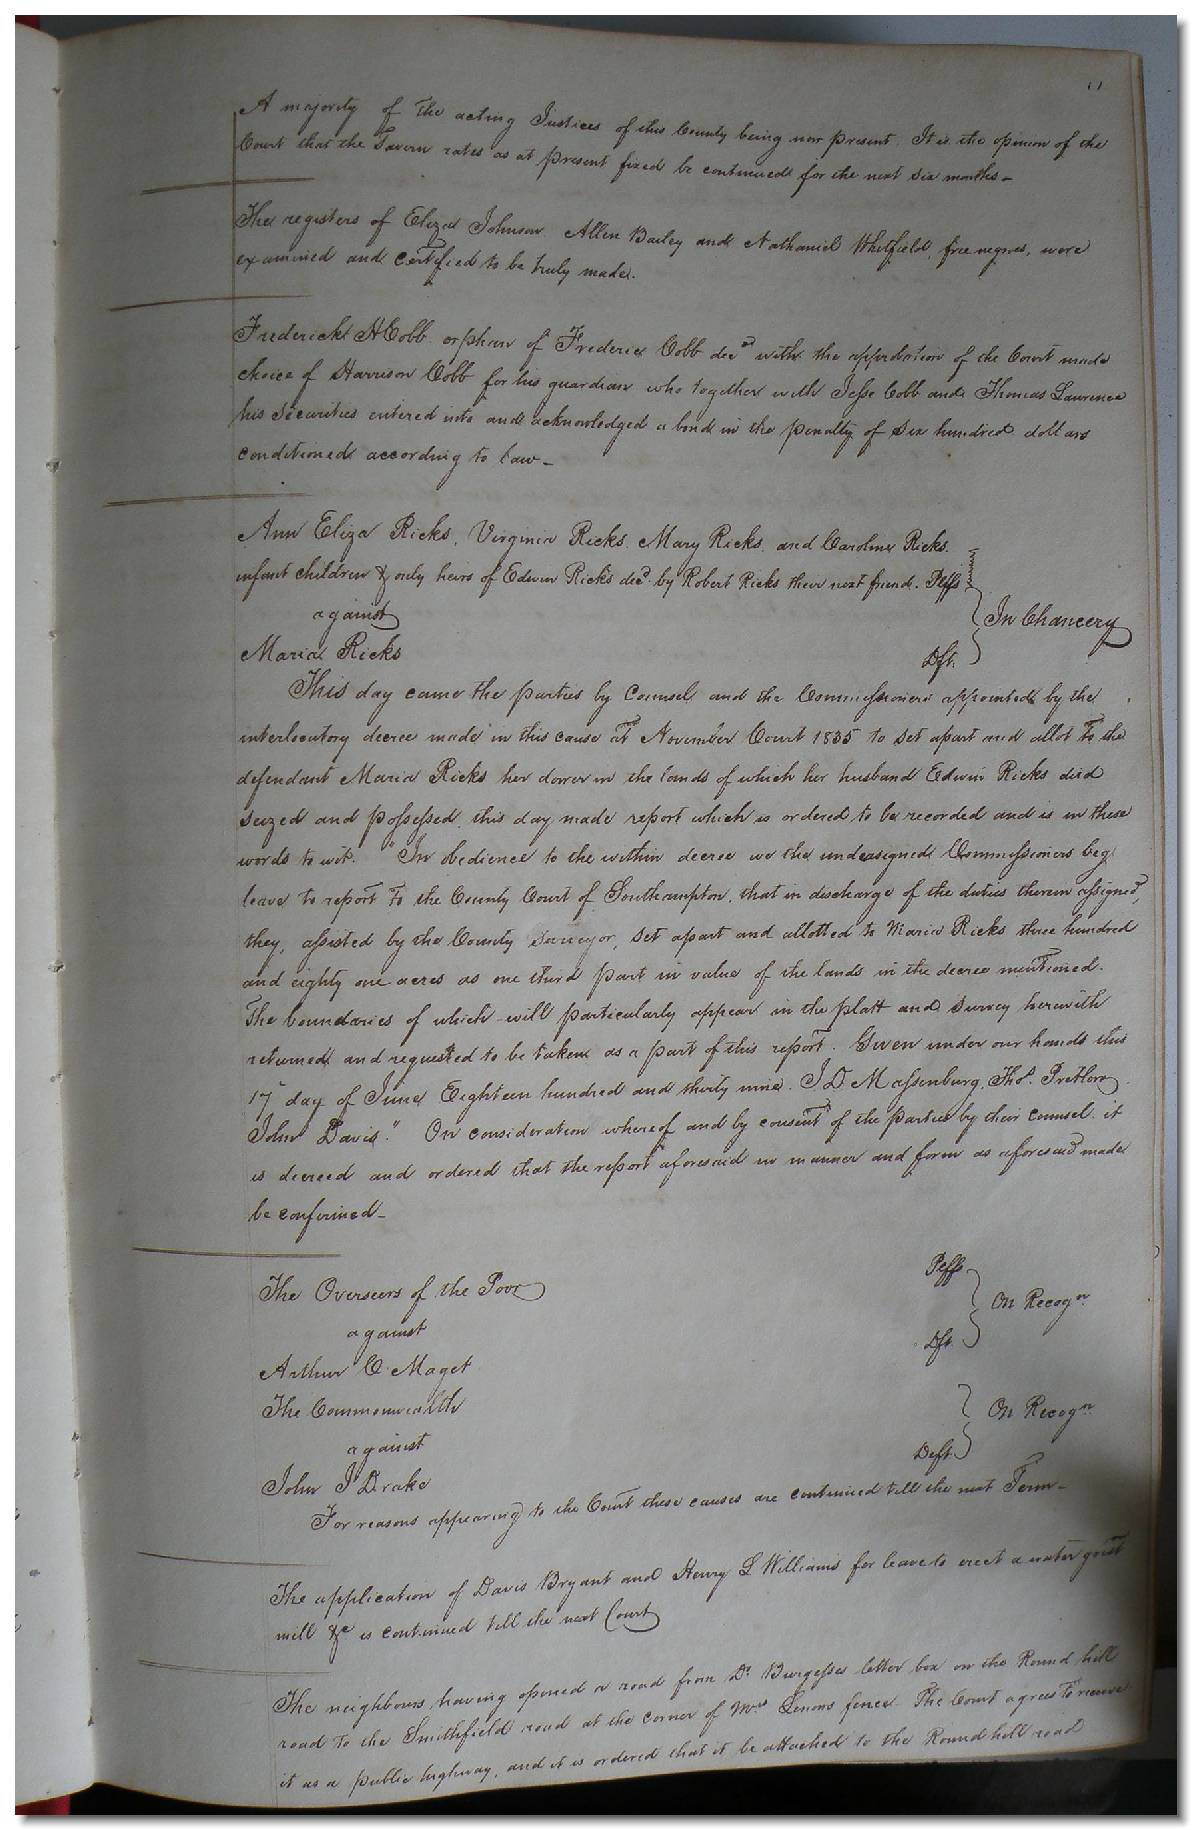 A majority of the acting Justices of this County being now present. It is the opinion of the
Court that the Tavern rates as at present fixed be continued for the next six months-
The registers of Eliza Johnson Allen Bailey and Nathaniel Whitfield, free negroes, were
examined and certified to be truly made.
Frederick A Cobb orphan of Frederic Cobb decd with the approbation of the Court made
choice of Harrison Cobb for his guardian who together with Jesse Cobb and Thomas Lawrence
his Securities entered into and acknowledged a bond in the penalty of six hundred dollars
conditioned according to law-
Ann Eliza Ricks, Virginia Ricks, Mary Ricks, and Caroline Ricks.
infant children & only heirs of Edwin Ricks decd by Robert Ricks their next friend. Plffs
In Chancery
against
Maria Ricks Dft.
This day came the parties by Counsel and the Commissioners appointed by the
interlocutory decree made in this cause at November Court 1835 to set apart and allot to the
defendant Maria Ricks her dower in the lands of which her husband Edwin Ricks died
seized and possessed, this day made report which is ordered to be recorded and is in these
words to wit: "In obedience to the within decree we the undersigned Commissioners beg
leave to report to the County Court of Southampton, that in discharge of the duties therein assigned,
they, assisted by the County Surveyor, set apart and allotted to Maria Ricks three hundred
and eighty one acres as one third part in value of the lands in the decree mentioned.
The boundaries of which will particularly appear in the platt and survey herewith
returned and requested to be taken as a part of this report. Given under our hands this
17 day of June Eighteen hundred and thirty nine. J D Massenburg, Thos. Pretlow
John Davis." On consideration whereof and by consent of the parties by their counsel it
is decreed and ordered that the report aforesaid in manner and form as aforesaid made
be confirmed-
The Overseers of the Poor Plffs
against On Recogn.
Arthur C. Maget Dft.
The Commonwealth
against On Recogn.
John J Drake Deft.
For reasons appearing to the Court these causes are continued till the next Term-
The application of Davis Bryant and Henry L Williams for leave to erect a water grist
mill &c is continued till the next Court
The neighbours having opened a road from Dr. Burgesses letter box on the Round hill
road to the Smithfield road at the corner of Mrs fence. The Court agrees to receive
it as a public highway, and it is ordered that it be attached to the Round hill road